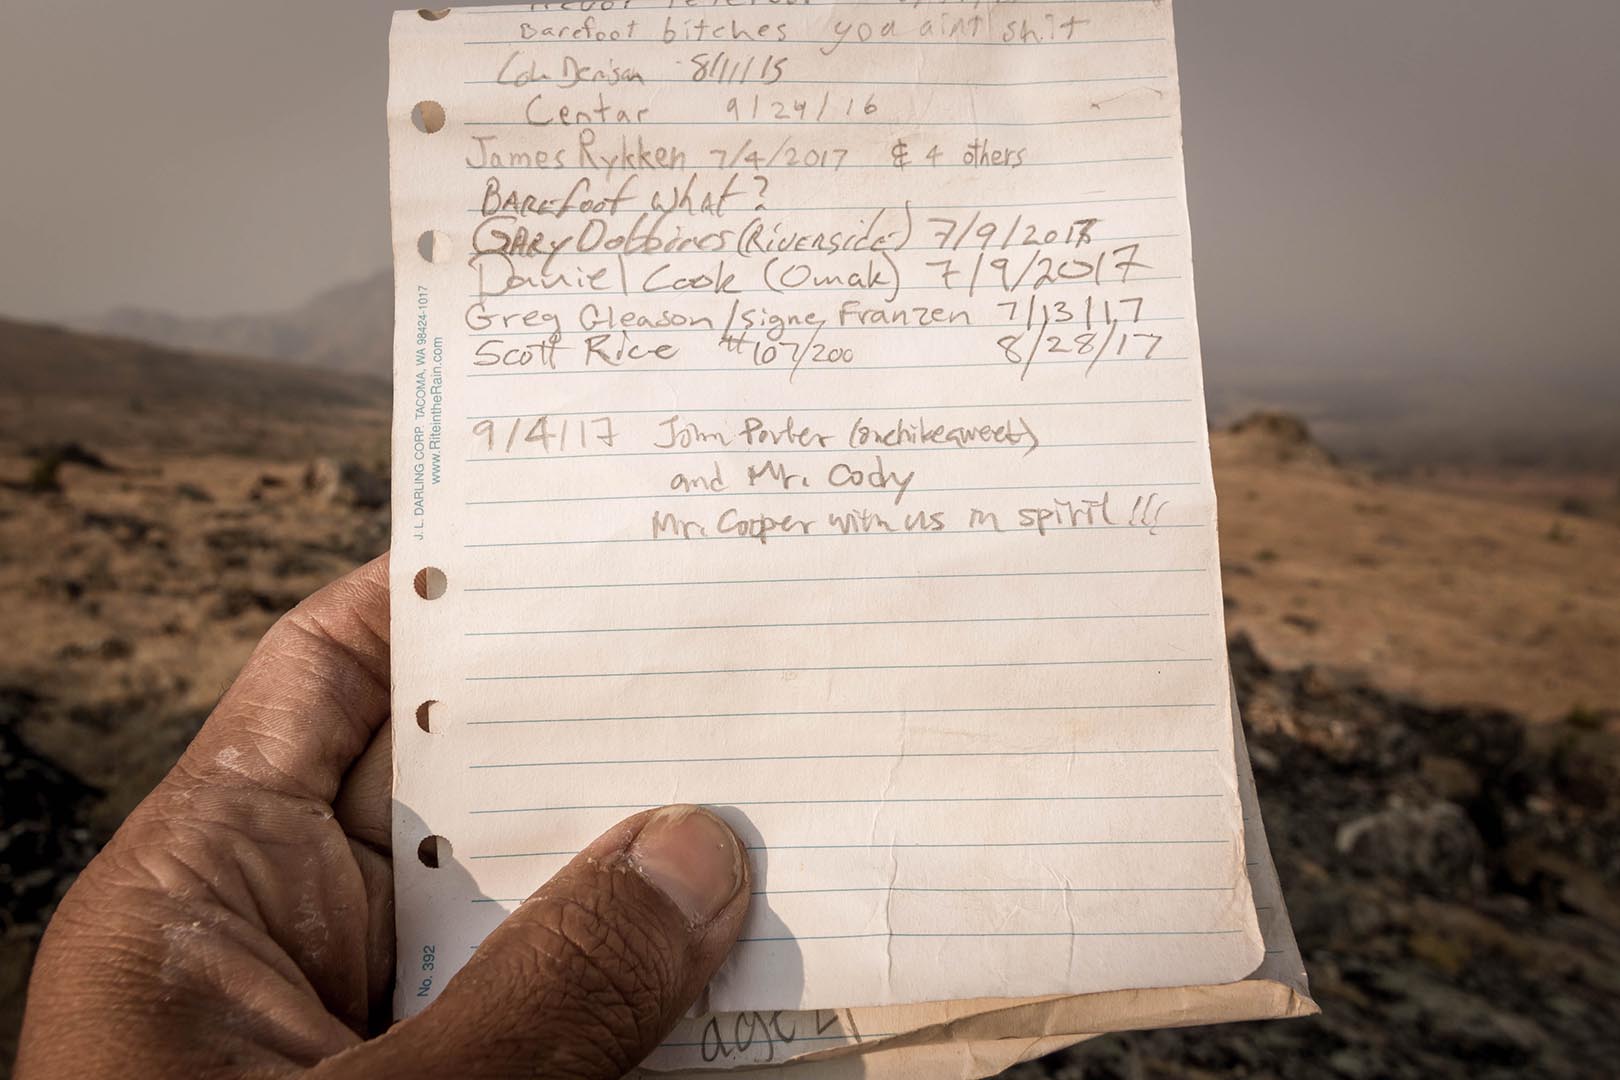 Barefoot bitches you aint shit
Denison 8/11/15
Centar 9/24/16
James Rykken 7/4/2017 & 4 others
BAREfoot what?
GARY Dobbins (RIVERSIDE) 7/9/2017
Daniel Cook (Omak) 7/9/2017
Greg Gleason/Signe Franzen 7/13/17
Scott Rice #107/200 8/28/17
9/4/17 John Porter (onehikeaweek)
and Mr. Cody
Mr. Cooper with us in spirit!!!
J. L. DARLING CORP. TACOMA, WA 98424-1017
www.RiteintheRain.com
No. 392
age